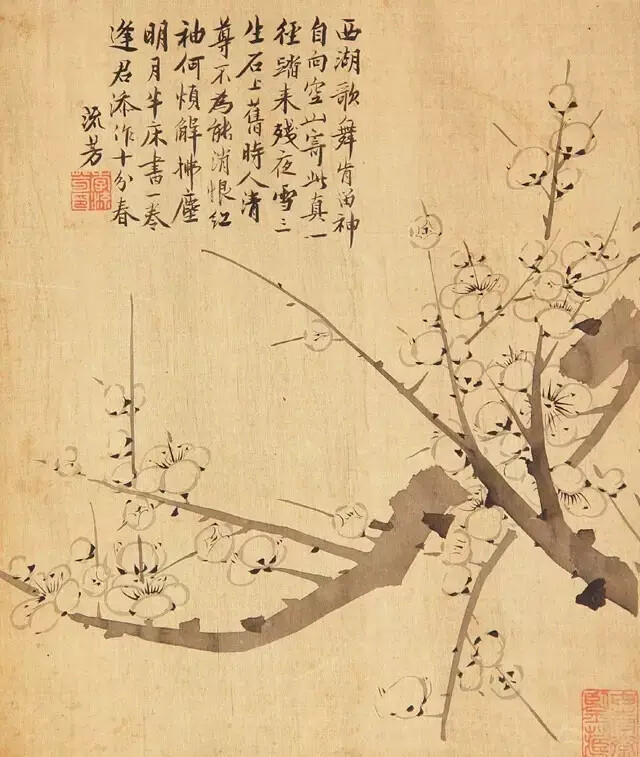 西湖歌舞肯留神
自向空山寄此真一
徑踏来残夜雪三
生石上舊時人清
尊不為能消恨红
袖何煩解拂塵
明月半床書一卷
逢君添作十分春
流芳
李流芳印